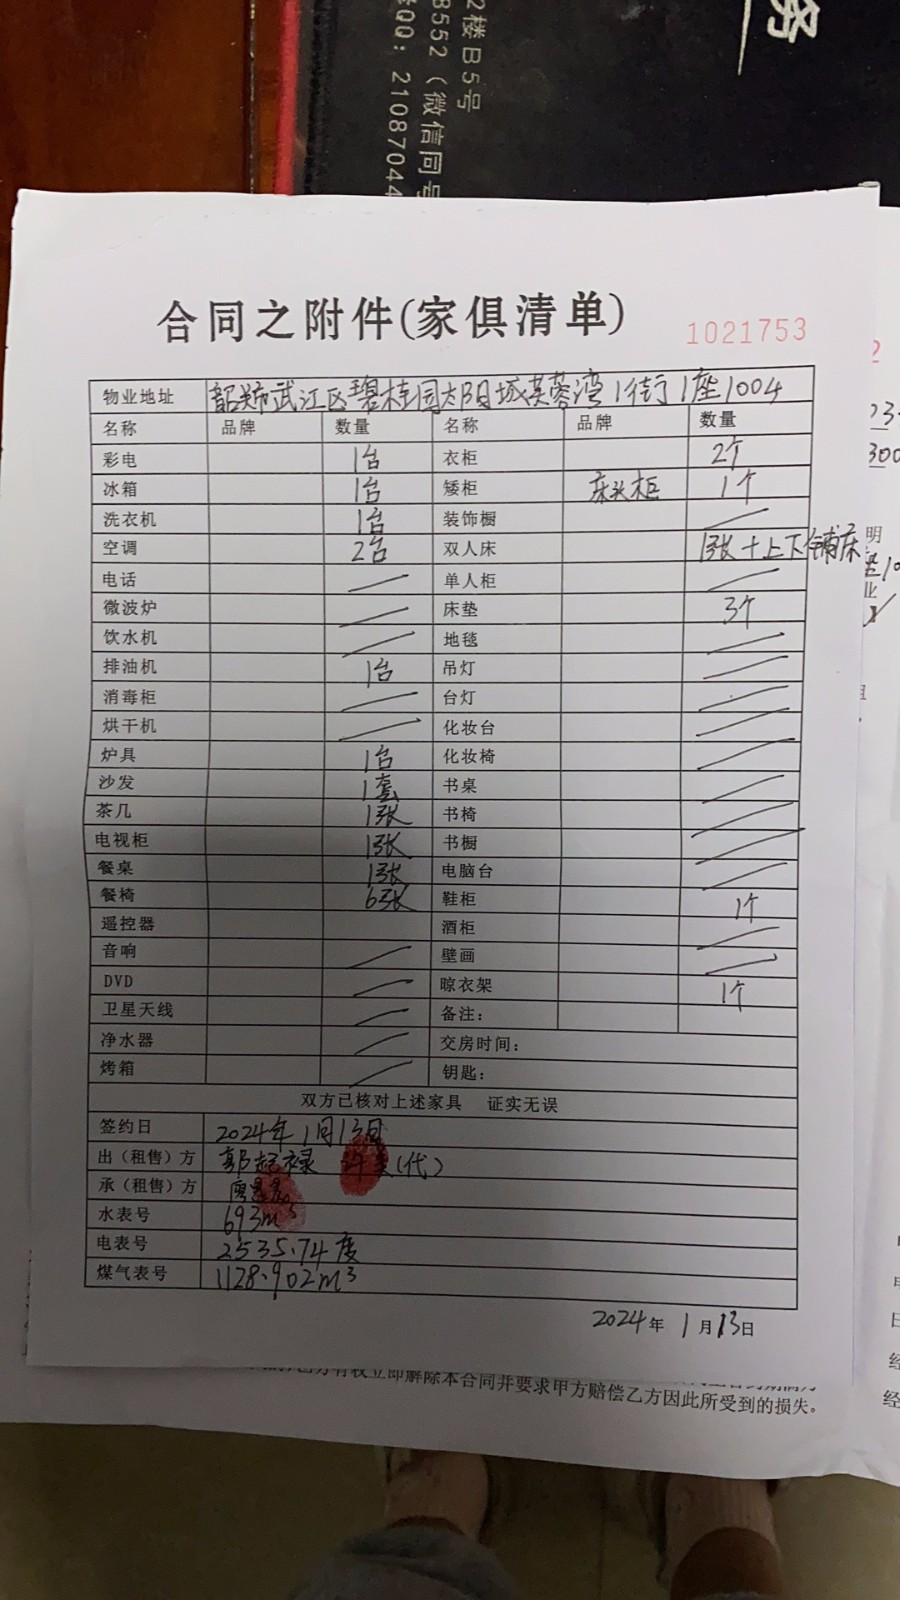 务
2楼B5号
8552（微信同号
QQ：21087044
合同之附件(家俱清单)
1021753
物业地址 韶关市武江区碧桂园太阳城芙蓉湾1街1座1004
名称 品牌 数量 名称 品牌 数量
彩电 1台 衣柜 2个
冰箱 1台 矮柜 床头柜 1个
洗衣机 1台 装饰橱
空调 2台 双人床 1张+上下铺床
电话 单人柜
微波炉 床垫 3个
饮水机 地毯
排油机 1台 吊灯
消毒柜 台灯
烘干机 化妆台
炉具 1台 化妆椅
沙发 1套 书桌
茶几 1张 书椅
电视柜 1张 书橱
餐桌 1张 电脑台
餐椅 6张 鞋柜 1个
遥控器 酒柜
音响 壁画
DVD 晾衣架 1个
卫星天线 备注：
净水器 交房时间：
烤箱 钥匙：
双方已核对上述家具 证实无误
签约日 2024年1月13日
出（租售）方 郭起禄 (代)
承（租售）方
水表号 693m³
电表号 2535.74度
煤气表号 1128.902m³
2024年1月13日
立即解除本合同并要求甲方赔偿乙方因此所受到的损失。